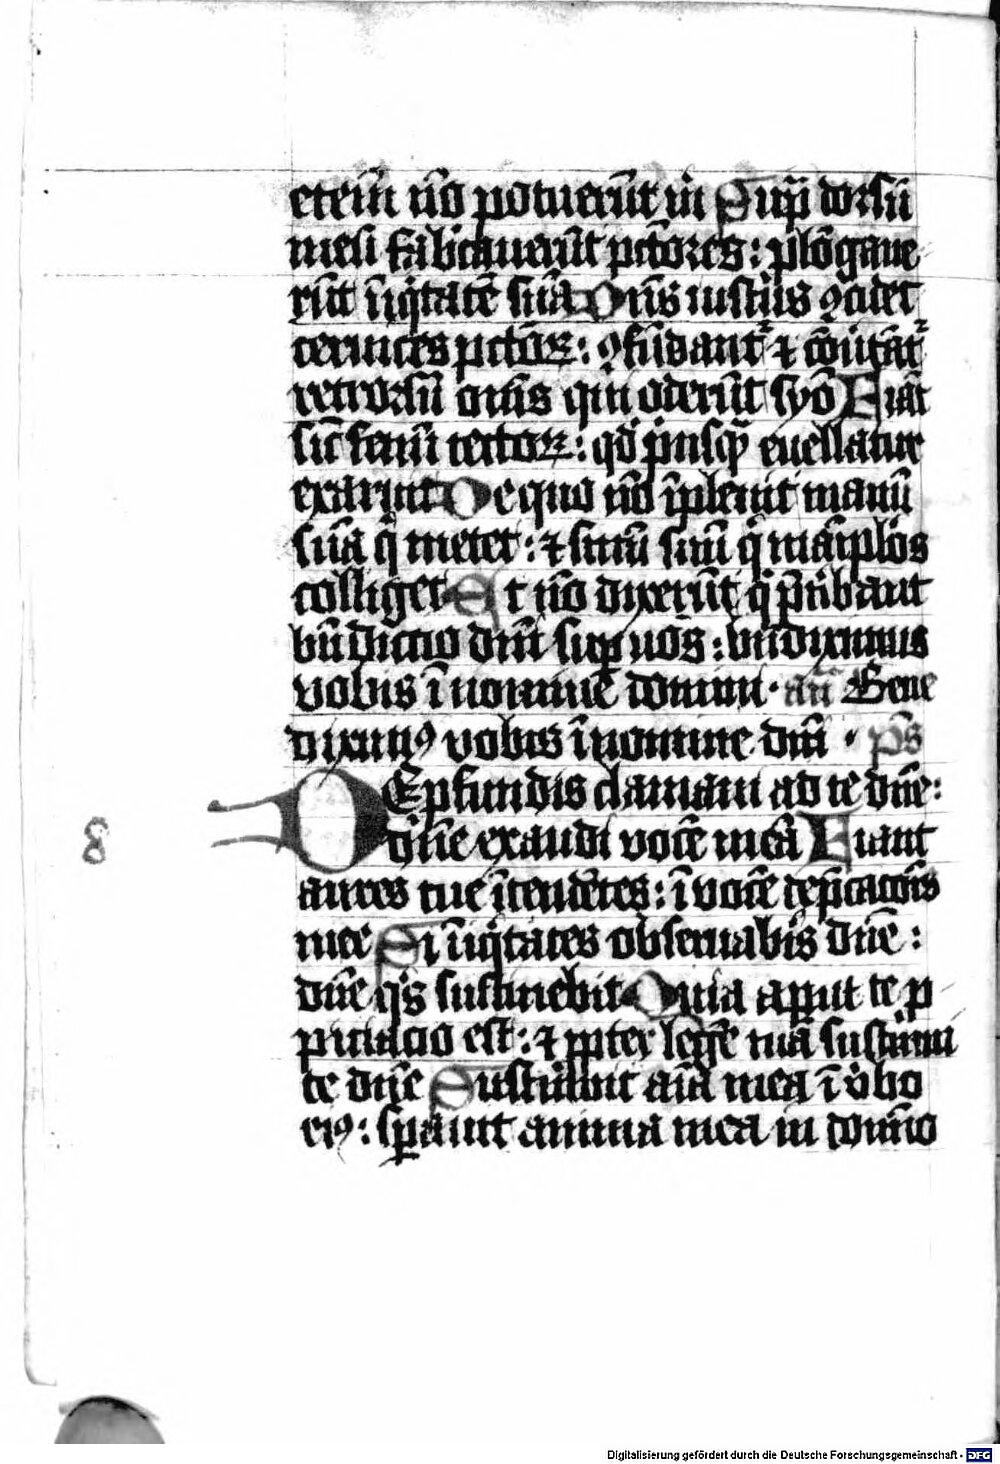 eteni̅ no̅ potueru̅t m̍ Sup̅ dorsu̅
meu̅ fabricaueru̅t pc̅tores : plo̅gaue
ru̅t i̅iq̍tate̅ sua̅ Dn̅s iustus ꝯcidet
ceruices pc̅toꝝ : ꝯfu̅dant᷑ ⁊ co̅uʹta̅t᷑
retrorsu̅ om̅s qui oderu̅t syo̅ Fia̅t
sic̅ fenu̅ tectoꝝ : qd̍ p̍usq̅ᷓ euellatur
exaruit De quo no̅ i̅pleuit manu̅
sua̅ q̍ metet : ⁊ sinu̅ suu̅ q̍ ma̅ip̍los
colliget Et no̅ dixeru̅t q̍ p̅t̍ibant
bn̅dictio dn̅i suꝑ uos : bn̅diximus
vobis i̅ nomine domini · an̅ Bene
diximꝰ vobis i̅ nomine dn̅i · ps̅
DE pfundis clamaui ad te dn̅e :
dn̅e exaudi voce̅ mea̅ Fiant
aures tue i̅tende̅tes : i̅ voce̅ dep̅cac̅ois
mee Si i̅iq̍tates obseruab̍is dn̅e :
dn̅e q̍s sustinebit Quia aput te p
piciacio est : ⁊ ꝓpter lege̅ tua̅ sustinui
te dn̅e Sustinuit ai̅a mea i̅ v̍bo
eiꝰ : sꝑauit anima mea in domi̅o
8
Digitalisierung gefördert durch die Deutsche Forschungsgemeinschaft - DFG